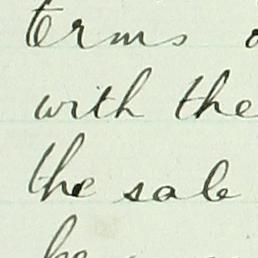 terms
with the
the sale